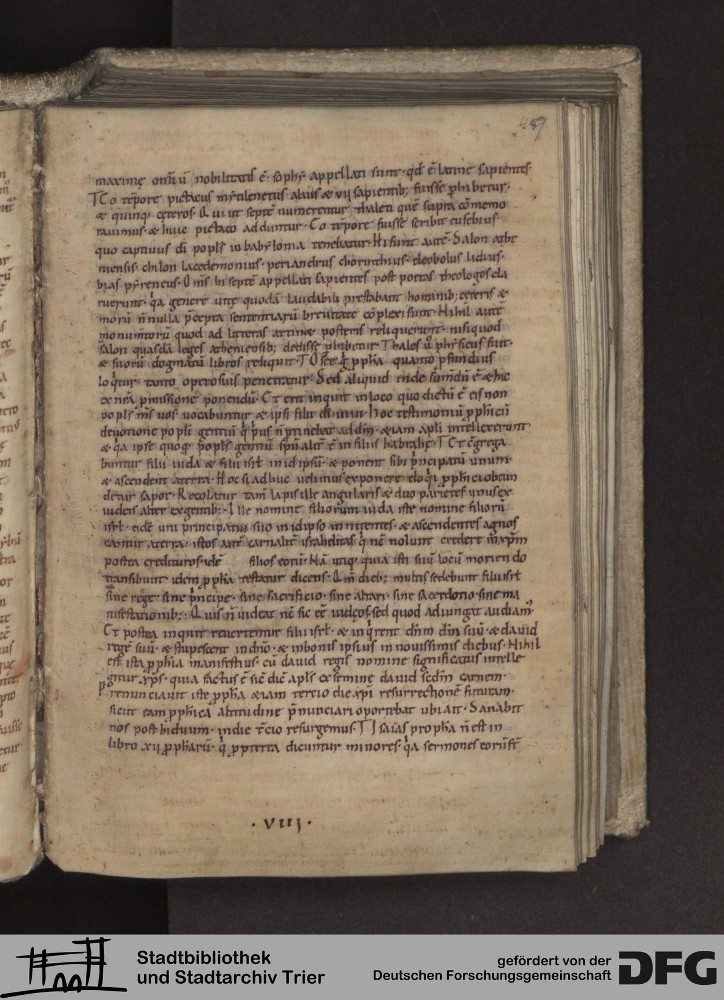 maximę om̄iū nobilitatis ē· sophị appellati sunt· qđ ē latine sapientes
Eo tēpore pictacus mỵtilenetus alius ex vii sapientib; fuisse ꝓhibetur·
& quinq; cęteros· Qui ut septē numerentur thaleti quē supra cōmemo
rauimus· & huic pictaco adduntur· Eo tēpore fuisse scribit eusebius
quo captiuus dī popłs in babỵlonia tenebatur· Hi sunt autē· Salon athe
niensis· chilon lacedemonius· periandrus chorinthius· cleobolus lidius·
bias pỵreneus· Om̄s hi septē appellati sapientes post poetas theologos cla
ruerunt· qa genere uitę quodā laudabili prestabant hominib; cęteris &
morū nnulla p̄cepta sententiarū breuitate cōplexi sunt· Nihil autē
monumtorū quod ad litteras attinet posteris reliquerunt· nisi quod
salon quasdā leges atheniensib; dedisse ꝓhibetur· Thales ū phỵsicus fuit·
& suorū dogmatū libros reliquit· Osee ꝓpha quanto ꝓfundius
loqtur· tanto operosius penetratur· Sed aliquid inde sumdū ē & hic
ex nrā pmissione ponendū· Et erit inquit in loco quo dictū ē eis non
popłs ms̄ uos· uocabuntur & ipsi filii di uiui· hoc testimoniū ꝓphicū
deuotione popłi gentiū q pus n ptinebat ad dm̄· etiam apłi intellexerunt·
& qa ipse quoq; popłs gentiū spū alit ē in filiis habrahę· Et cgrega
buntur filii iuda & filii isrł in id ipsū· & ponent sibi pncipatū unum·
& ascendent a terra· Hoc si adhuc uelimus exponere eloqi ꝓphici obtun
detur sapor· Recolatur tam̄ lapis ille angularis & duo parietes unus ex
iudeis alter ex gentib;· Ille nomine filiorum iuda iste nomine filiorū
isrł· eidē uni principatui suo in id ipso innitentes· & ascendentes agnos
cantur a terra· istos autē carnalit israhelitas q nc̄ nolunt credere in xpm̄
postea credituros· idē filios eorū· Nā utiq; quia isti suū locū moriendo
transibunt idem ꝓpha testatur dicens· Qm̄ dieb; multis sedebunt filii isrł
sine rege· sine pncipe· sine sacrificio· sine altari· sine sacerdotio· sine ma
nifestationib;· Quis n uideat nc̄ sic eē iudeos· sed quod adiungat audiam·
Et postea inquit reuertentur filii isrł· & inqrent dnm̄ dm̄ suū· & dauid
regē suū· & stupescent in dn̄o· & in bonis ipsius in nouissimis diebus· Nihil
est ista ꝓphia manifestius· cū dauid regis nomine significatus intelle
gitur xps· quia factus ē sic dic apłs ex semine dauid scdm̄ carnem·
prenunciauit iste ꝓpha etiam tercio die xpi resurrectionē futuram·
sicut eam ꝓphica altitudine pnunciari oportebat ubi ait· Sanabit
nos post biduum· in die tcio resurgemus· Isaias ꝓpha n est in
libro xii ꝓpharū· q ꝓpterea dicuntur minores· qa sermones eorū st̄
· VIII ·
Stadtbibliothek
und Stadtarchiv Trier
gefördert von der
Deutschen Forschungsgemeinschaft
DFG